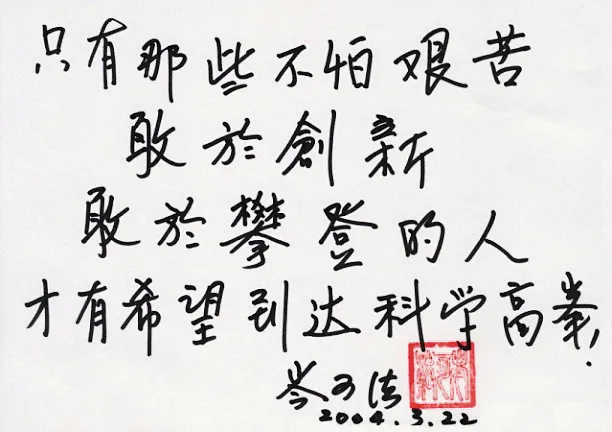 只有那些不怕艰苦
敢於創新
敢於攀登的人
才有希望到达科学高峯.
岑可法
2004.3.22